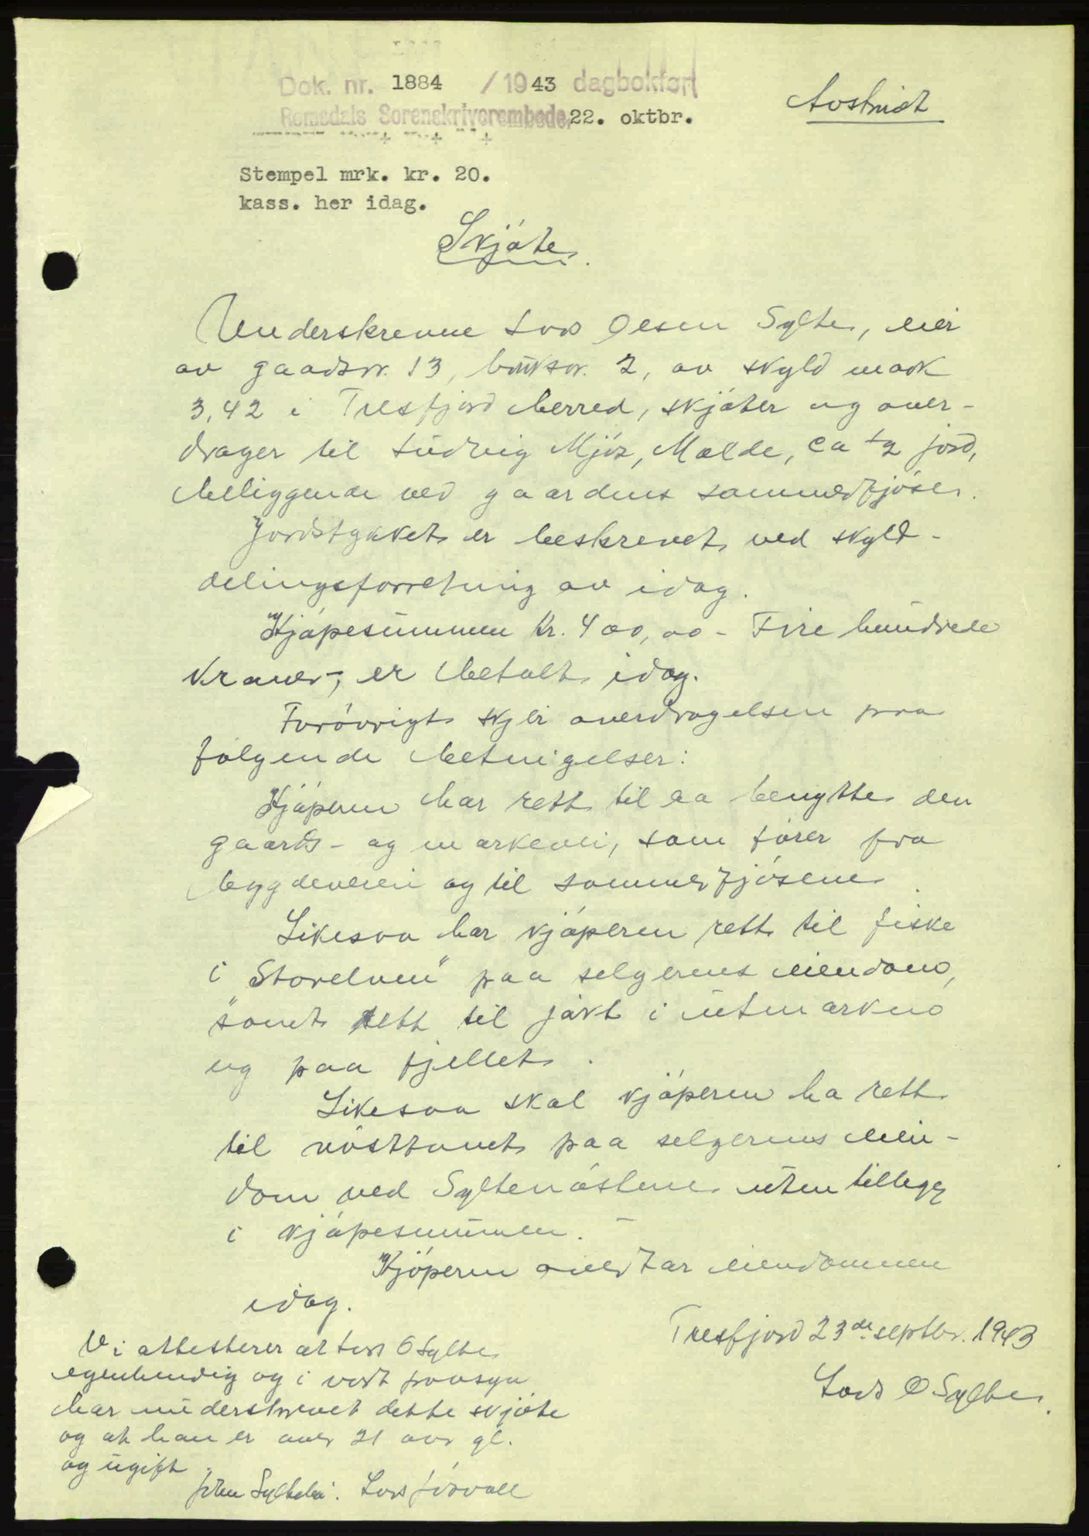 Dok. nr. 1884 /1943 dagbokført
Romsdals Sorenskriverembede, 22. oktbr.
Avskrift
Stempel mrk. kr. 20.
kass. her idag.
Skjøte.
Underskrevne Lars Olsen Sylte, eier
av gaardsnr. 13, bruksnr. 2, av skyld mark
3,42 i Tresfjord herred, skjøter og over-
drager til Ludvig Mjøs, Molde, ca jord,
beliggende ved gaardens sommerfjøser.
Jordstykket er beskrevet ved skyld-
delingsforretning av idag.
Kjøpesummen kr. 400,00 - Fire hundrede
kroner -, er betalt idag.
Forøvrigt skjer overdragelsen paa
følgende betingelser:
Kjøperen har rett til aa benytte den
gaards- og markevei, som fører fra
bygdeveien og til sommerfjøsene.
Likesaa har kjøperen rett til fiske
i "Storelven" paa selgerens eiendom,
samt rett til jakt i utmarken
og paa fjellet.
Likesaa skal kjøperen ha rett
til nøsttomt paa selgerens eien-
dom ved Syltenøstene uten tillegg
i kjøpesummen.
Kjøperen overtar eiendommen
idag.
Tresfjord 23de septbr. 1943
Lars O Sylte.
Vi attesterer at Lars O Sylte
egenhendig og i vort paasyn
har underskrevet dette skjøte
og at han er over 21 aar gl.
og ugift.
John Sylte. Lars